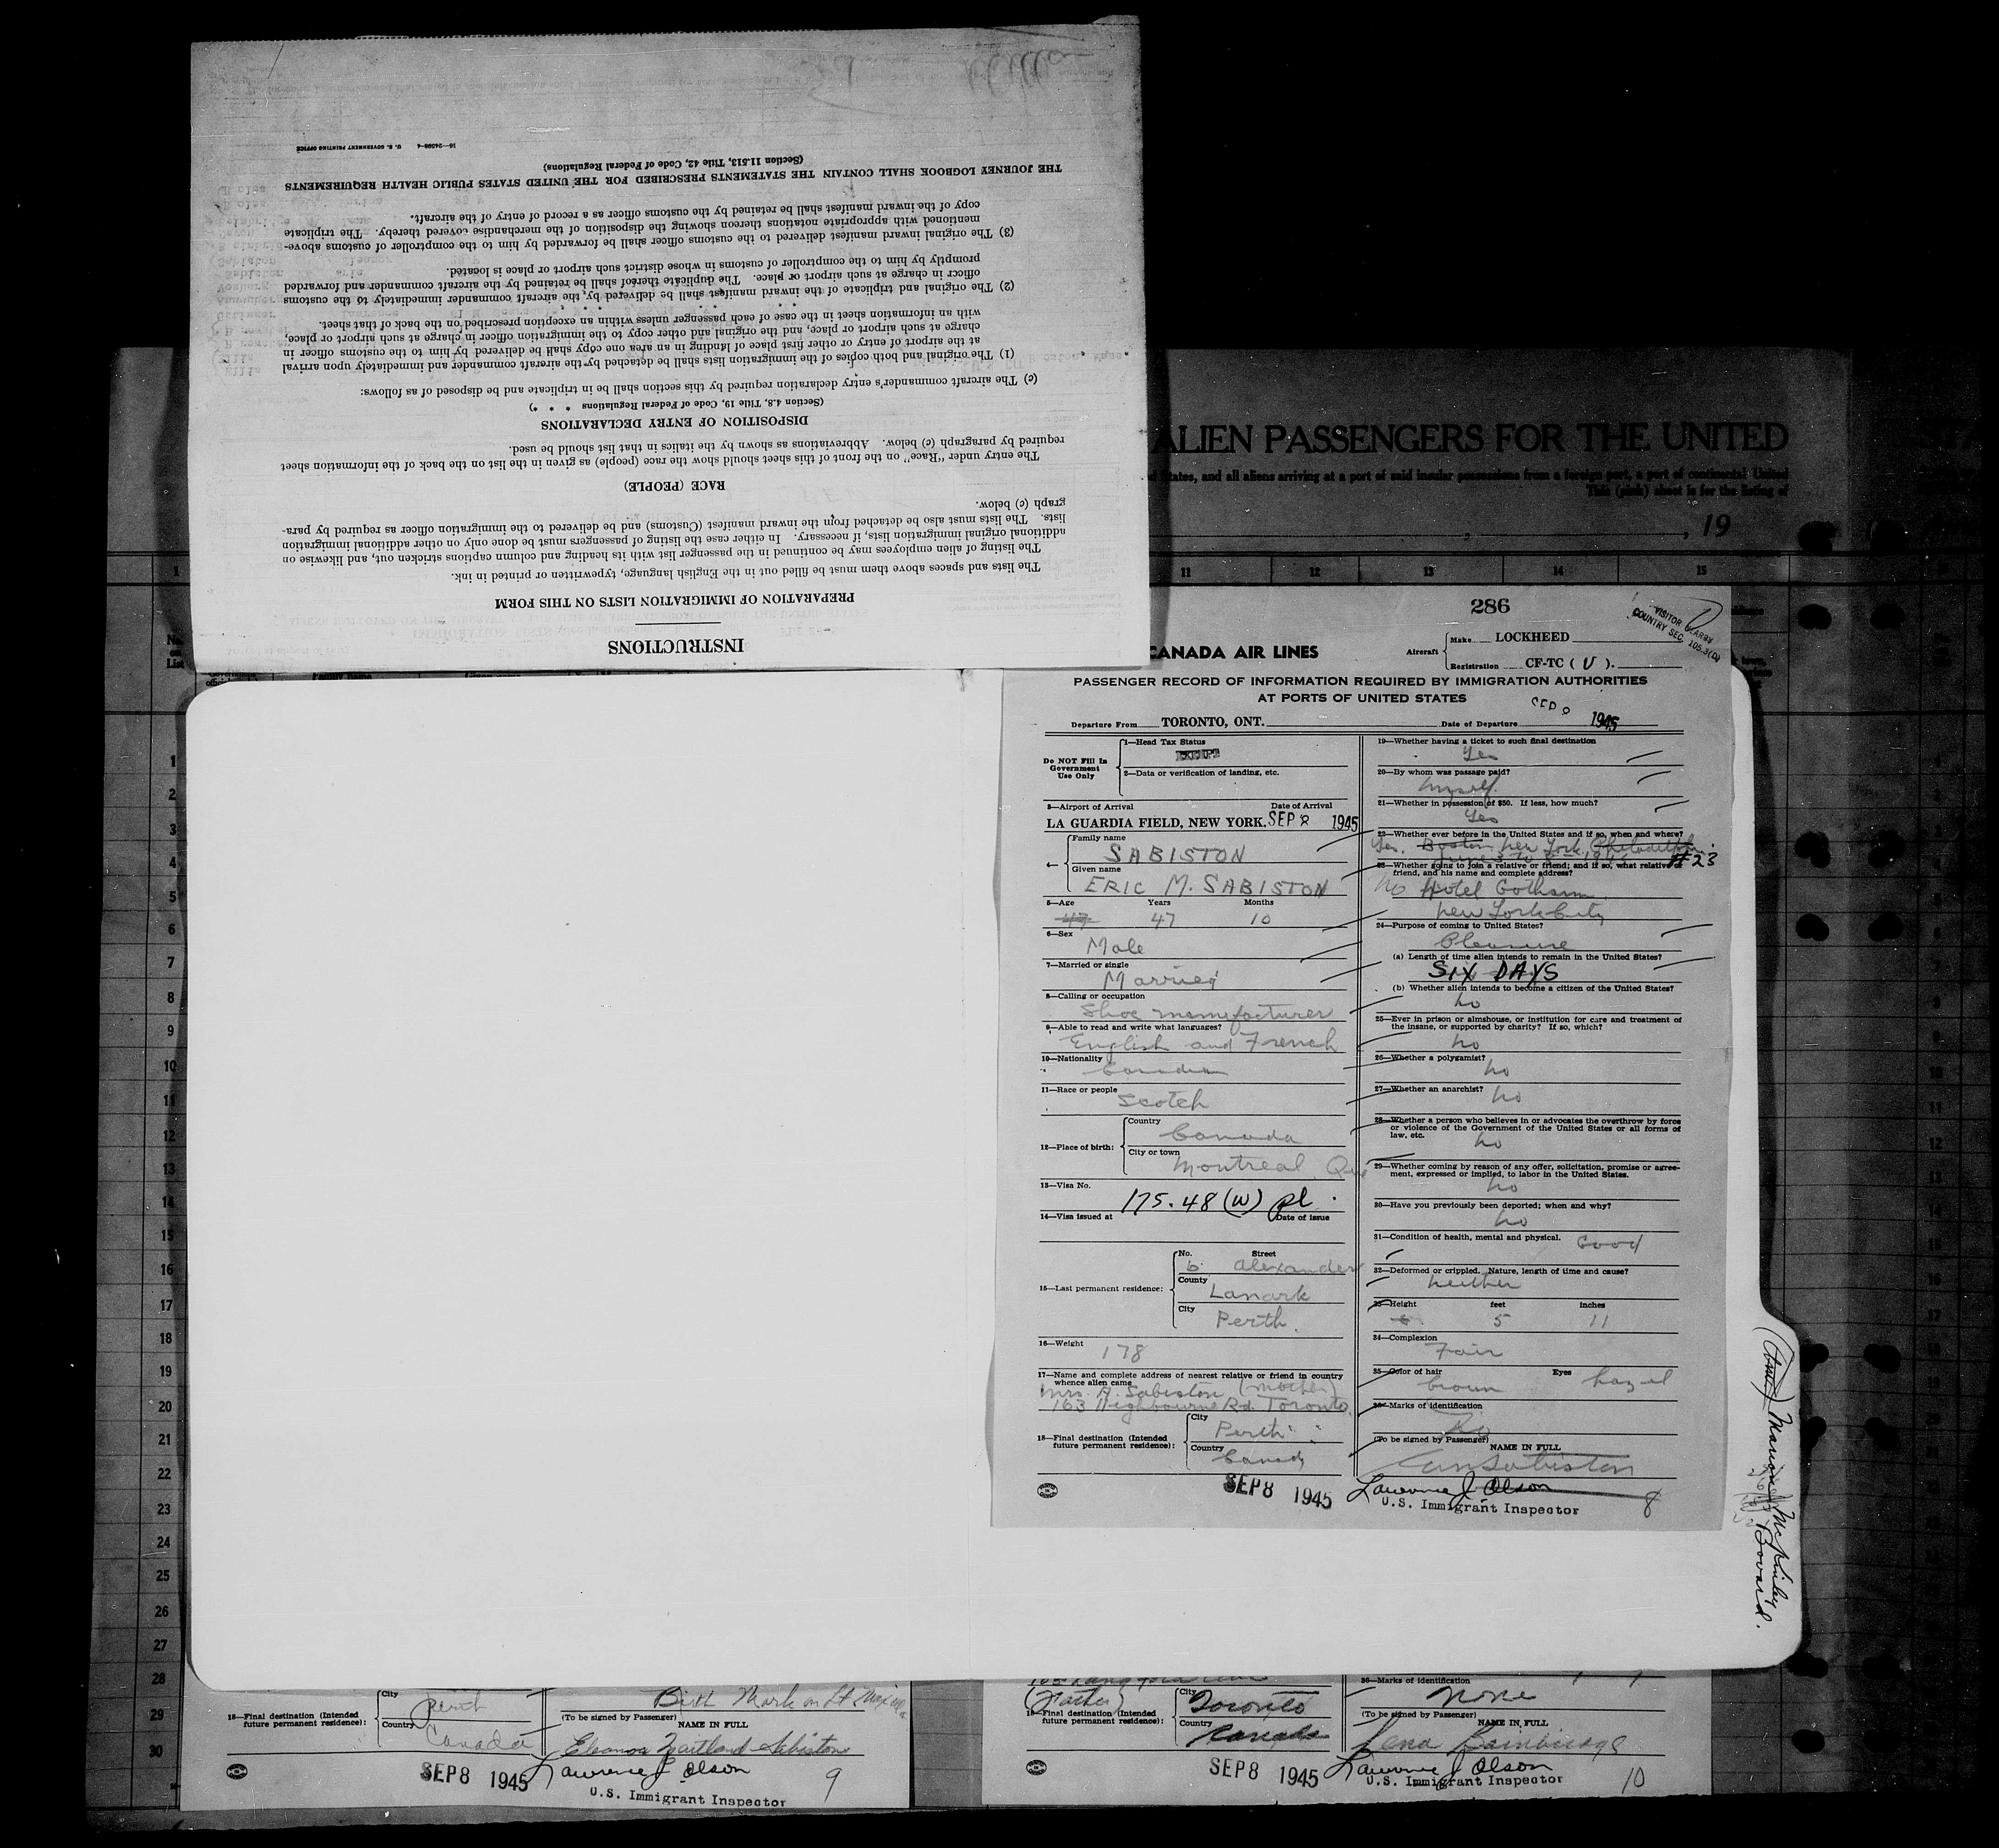 INSTRUCTIONS
PREPARATION OF IMMIGRATION LISTS ON THIS FORM
The lists and spaces above them must be filled out in the English language, typewritten or printed in ink.
The listing of alien employees may be continued in the passenger list with its heading and column captions stricken out, and likewise on
additional original immigration lists, if necessary. In either case the listing of passengers must be done only on other additional immigration
lists. The lists must also be detached from the inward manifest (Customs) and be delivered to the immigration officer as required by para-
graph (c) below.
RACE (PEOPLE)
The entry under "Race" on the front of this sheet should show the race (people) as given in the list on the back of the information sheet
required by paragraph (c) below. Abbreviations as shown by the italics in that list should be used.
DISPOSITION OF ENTRY DECLARATIONS
(Section 4.8, Title 19, Code of Federal Regulations * * *)
(c) The aircraft commander's entry declaration required by this section shall be in triplicate and be disposed of as follows:
(1) The original and both copies of the immigration lists shall be detached by the aircraft commander and immediately upon arrival
at the airport of entry or other first place of landing in an area one copy shall be delivered by him to the customs officer in
charge at such airport or place, and the original and other copy to the immigration officer in charge at such airport or place,
with an information sheet in the case of each passenger unless within an exception prescribed on the back of that sheet.
* * * * *
(2) The original and triplicate of the inward manifest shall be delivered by the aircraft commander immediately to the customs
officer in charge at such airport or place. The duplicate thereof shall be retained by the aircraft commander and forwarded
promptly by him to the comptroller of customs in whose district such airport or place is located.
(3) The original inward manifest delivered to the customs officer shall be forwarded by him to the comptroller of customs above-
mentioned with appropriate notations thereon showing the disposition of the merchandise covered thereby. The triplicate
copy of the inward manifest shall be retained by the customs officer as a record of entry of the aircraft.
THE JOURNEY LOGBOOK SHALL CONTAIN THE STATEMENTS PRESCRIBED FOR THE UNITED STATES PUBLIC HEALTH REQUIREMENTS
(Section 11.513, Title 42, Code of Federal Regulations)
16—24598-4 U. S. GOVERNMENT PRINTING OFFICE
ALIEN PASSENGERS FOR THE UNITED
States, and all aliens arriving at a port of said insular possessions from a foreign port, a port of continental United
This (pink) sheet is for the listing of
, 19
11 12 13 14 15
286
VISITOR
COUNTRY SEC. 105.3(D)
CANADA AIR LINES
Aircraft
Make LOCKHEED
Registration CF-TC ( U ).
PASSENGER RECORD OF INFORMATION REQUIRED BY IMMIGRATION AUTHORITIES
AT PORTS OF UNITED STATES
Departure From TORONTO, ONT. Date of Departure SEP 8 1945
Do NOT Fill In
Government
Use Only
1—Head Tax Status
EXEMPT
2—Data or verification of landing, etc.
3—Airport of Arrival Date of Arrival
LA GUARDIA FIELD, NEW YORK. SEP 8 1945
4— Family name
SABISTON
Given name
ERIC M. SABISTON
5—Age Years Months
47 47 10
6—Sex
Male
7—Married or single
Married
8—Calling or occupation
Shoe manufacturer
9—Able to read and write what languages?
English and French
10—Nationality
Canadian
11—Race or people
Scotch
12—Place of birth:
Country
Canada
City or town
Montreal Que
13—Visa No.
175.48 (W) pl.
14—Visa issued at Date of issue
15—Last permanent residence:
No. Street
6 Alexander
County
Lanark
City
Perth.
16—Weight
178
17—Name and complete address of nearest relative or friend in country
whence alien came
Mrs. A. Sabiston (mother)
163 Highbourne Rd. Toronto.
18—Final destination (Intended
future permanent residence):
City
Perth
Country
Canada
SEP 8 1945
19—Whether having a ticket to such final destination
Yes
20—By whom was passage paid?
myself.
21—Whether in possession of $50. If less, how much?
Yes
22—Whether ever before in the United States and if so, when and where?
Yes. Boston New York Philadelphia.
#23
23—Whether going to join a relative or friend; and if so, what relative or
friend, and his name and complete address?
No Hotel Gotham
New York City
24—Purpose of coming to United States?
Pleasure
(a) Length of time alien intends to remain in the United States?
SIX DAYS
(b) Whether alien intends to become a citizen of the United States?
no
25—Ever in prison or almshouse, or institution for care and treatment of
the insane, or supported by charity? If so, which?
no
26—Whether a polygamist?
no
27—Whether an anarchist?
no
28—Whether a person who believes in or advocates the overthrow by force
or violence of the Government of the United States or all forms of
law, etc.
no
29—Whether coming by reason of any offer, solicitation, promise or agree-
ment, expressed or implied, to labor in the United States.
no
30—Have you previously been deported; when and why?
no
31—Condition of health, mental and physical. Good
32—Deformed or crippled. Nature, length of time and cause?
neither
33—Height feet inches
5 11
34—Complexion
Fair
35—Color of hair Eyes
brown hazel
36—Marks of identification
No
(To be signed by Passenger)
NAME IN FULL
Lawrence J. Olson
U.S. Immigrant Inspector 8
Marion McKinley
Bovard.
18—Final destination (Intended
future permanent residence):
City
Perth
Country
Canada
Birth Mark on Lt
(To be signed by Passenger)
NAME IN FULL
Eleanor Maitland Sabiston
SEP 8 1945 Lawrence J. Olson
U.S. Immigrant Inspector 9
(Father)
18—Final destination (Intended
future permanent residence):
City
Toronto
Country
Canada
36—Marks of identification
None
(To be signed by Passenger)
NAME IN FULL
Lena Bainbridge
SEP 8 1945 Lawrence J. Olson
U.S. Immigrant Inspector 10
1
2
3
4
5
6
7
8
9
10
11
12
13
14
15
16
17
18
19
20
21
22
23
24
25
26
27
28
29
30